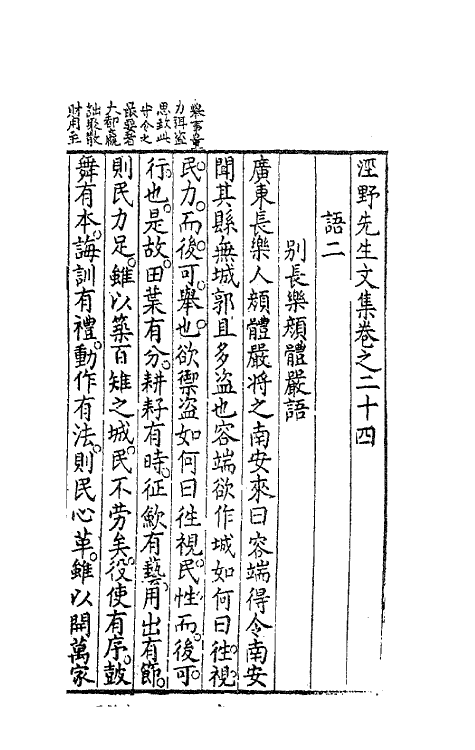 涇野先生文集卷之二十四
語二
別長樂顏體嚴語
廣東長樂人顏體嚴将之南安來曰容端得令南安
聞其縣無城郭且多盗也容端欲作城如何曰徃視
民力而後可舉也欲禦盗如何曰徃視民性而後可
行也是故田葉有分耕耔有時征歛有藝用出有節
則民力足雖以築百雉之城民不劳矣役使有序鼓
舞有本誨訓有禮動作有法則民心革雖以開萬家
舉事量
力弭盗
思教此
守令之
最要者
大都
聚散
財用至